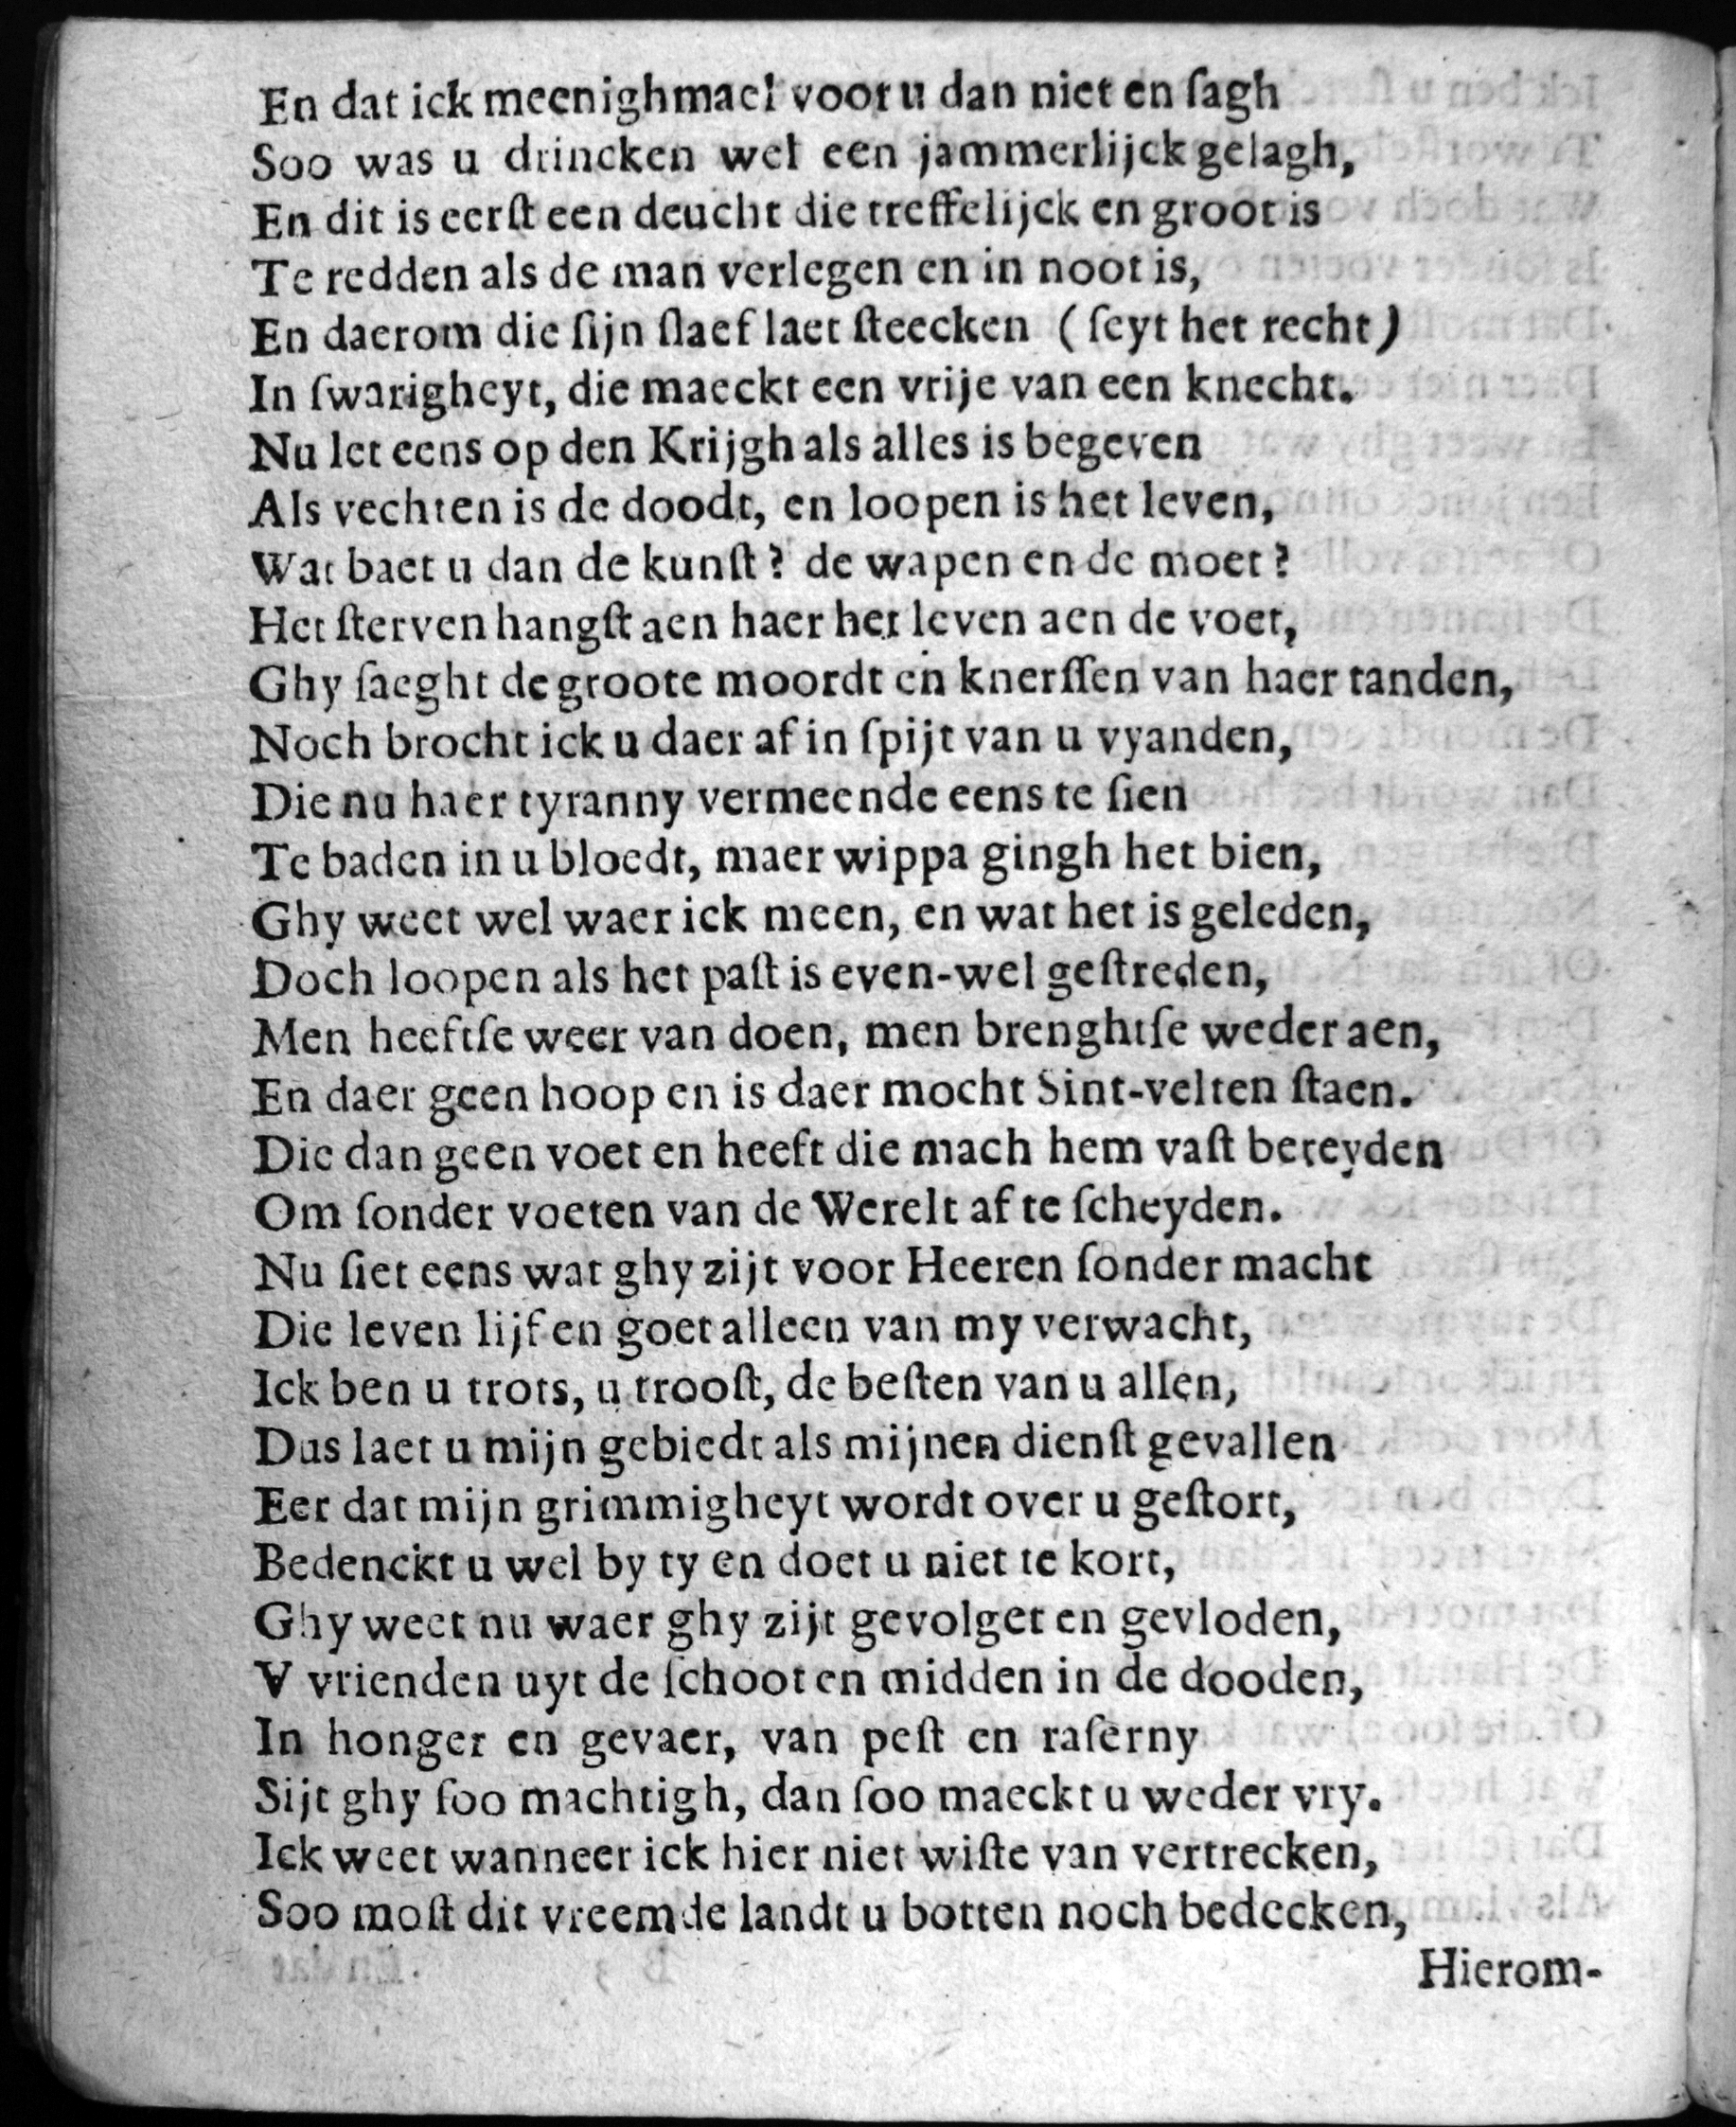 En dat ick meenighmael voor u dan niet en ſagh
Soo was u drincken wel een jammerlijck gelagh,
En dit is eerſt een deucht die treffelijck en groot is
Te redden als de man verlegen en in noot is,
En daerom die ſijn ſlaef laet ſteecken (ſeyt het recht)
In ſwarigheyt, die maeckt een vrije van een knecht.
Nu let eens op den Krijgh als alles is begeven
Als vechten is de doodt, en loopen is het leven,
Wat baet u dan de kunſt? de wapen en de moet?
Het ſterven hangſt aen haer het leven aen de voet,
Ghy ſaeght de groote moordt en knerſſen van haer tanden,
Noch brocht ick u daer af in ſpijt van u vyanden,
Die nu haer tyranny vermeende eens te ſien
Te baden in u bloedt, maer wippa gingh het bien,
Ghy weet wel waer ick meen, en wat het is geleden,
Doch loopen als het paſt is even-wel geſtreden,
Men heeftſe weer van doen, men brenghtſe weder aen,
En daer geen hoop en is daer mocht Sint-velten ſtaen.
Die dan geen voet en heeft die mach hem vaſt bereyden
Om ſonder voeten van de Werelt af te ſcheyden.
Nu ſiet eens wat ghy zijt voor Heeren ſonder macht
Die leven lijf en goet alleen van my verwacht,
Ick ben u trots, u trooſt, de beſten van u allen,
Dus laet u mijn gebiedt als mijnen dienſt gevallen
Eer dat mijn grimmigheyt wordt over u geſtort,
Bedenckt u wel by ty en doet u niet te kort,
Ghy weet nu waer ghy zijt gevolget en gevloden,
V vrienden uyt de ſchoot en midden in de dooden,
In honger en gevaer, van peſt en raſerny
Sijt ghy ſoo machtigh, dan ſoo maeckt u weder vry.
Ick weet wanneer ick hier niet wiſte van vertrecken,
Soo moſt dit vreemde landt u botten noch bedecken,
Hierom-